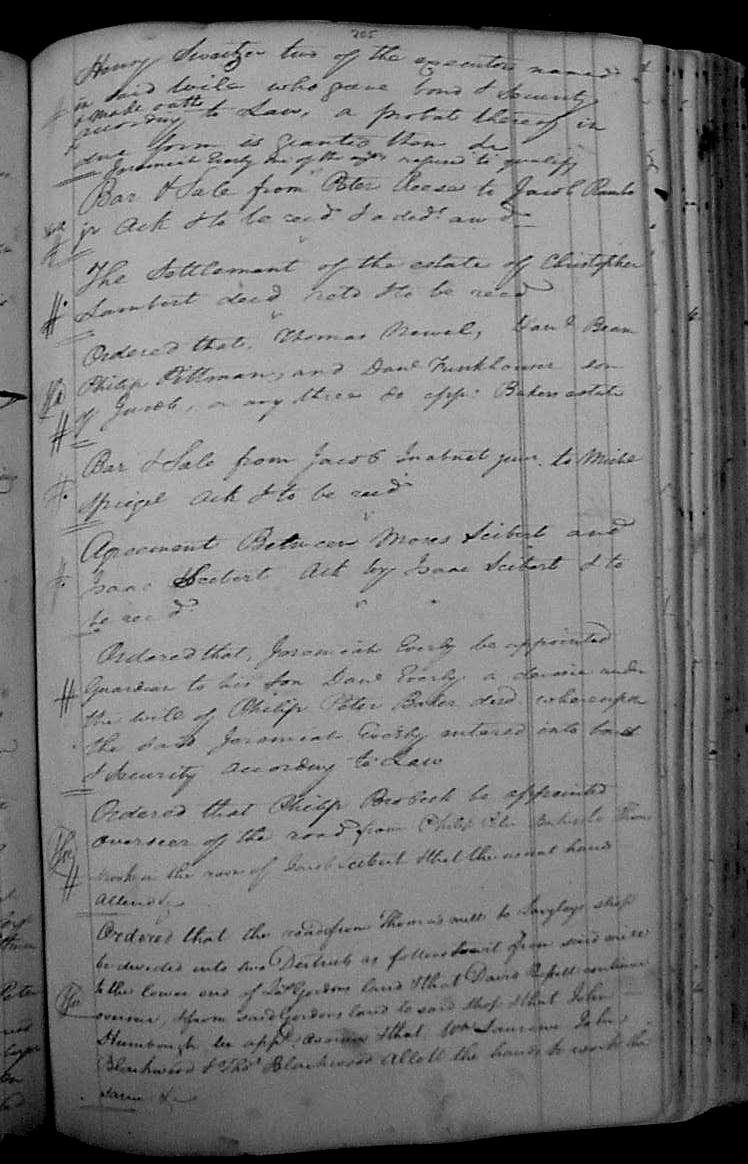 205
Henry Switzer two of the executors named
in said will who gave bond & Security
& made oath
according to Law, a probat thereof in
due form is granted them &c
Jeremiah Everly one of the exrs refused to qualify
Bar & Sale from Peter Reese to Jacob Rambo
jr Ack & to be recd & a dedt awd
The Settlement of the estate of Christopher
Lambert decd retd & to be recd
Ordered that Thomas Newel, Danl Bean
Philip Pittman, and Danl Funkhouser son
of Jacob, or any three do app: Bakers estate
Bar & Sale from Jacob junr. to Michl
Spiegel Ack & to be recd
Agreement Between Moses Seibert and
Isaac Seibert Ack by Isaac Seibert & to
be recd
Ordered that, Jeremiah Everly be appointed
Guardian to his son Danl Everly a devisee under
the will of Philip Peter Baker decd. whereupon
the said Jeremiah Everly entered into bond
& Security according to Law
Ordered that Philip Brobeck be appointed
overseer of the road from Philip Peter
in the room of Jacob Seibert & that the usual hands
attend &c
Ordered that the road from Thomas mill to Langleys shop
be divided into two Districts as follows towit from said mill
to the lower end of Gordons land & that David continue
overseer, & from said Gordons land to said shop & that John
Humbough be appd overseer & that Wm Laurence John
Blackwood & Thos Blackwood Allott the hands to work the
same &c